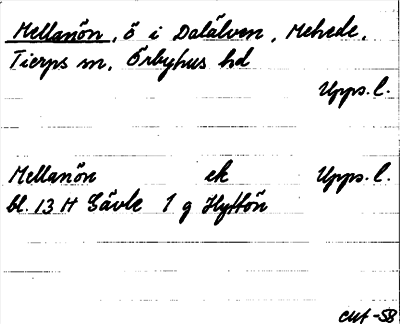 Mellanön, ö i Dalälven, Mehede,
Tierps sn, Örbyhus hd
Upps.l.
Mellanön ek Upps.l.
bl. 13 H Gävle 1 g Hyttön
-58